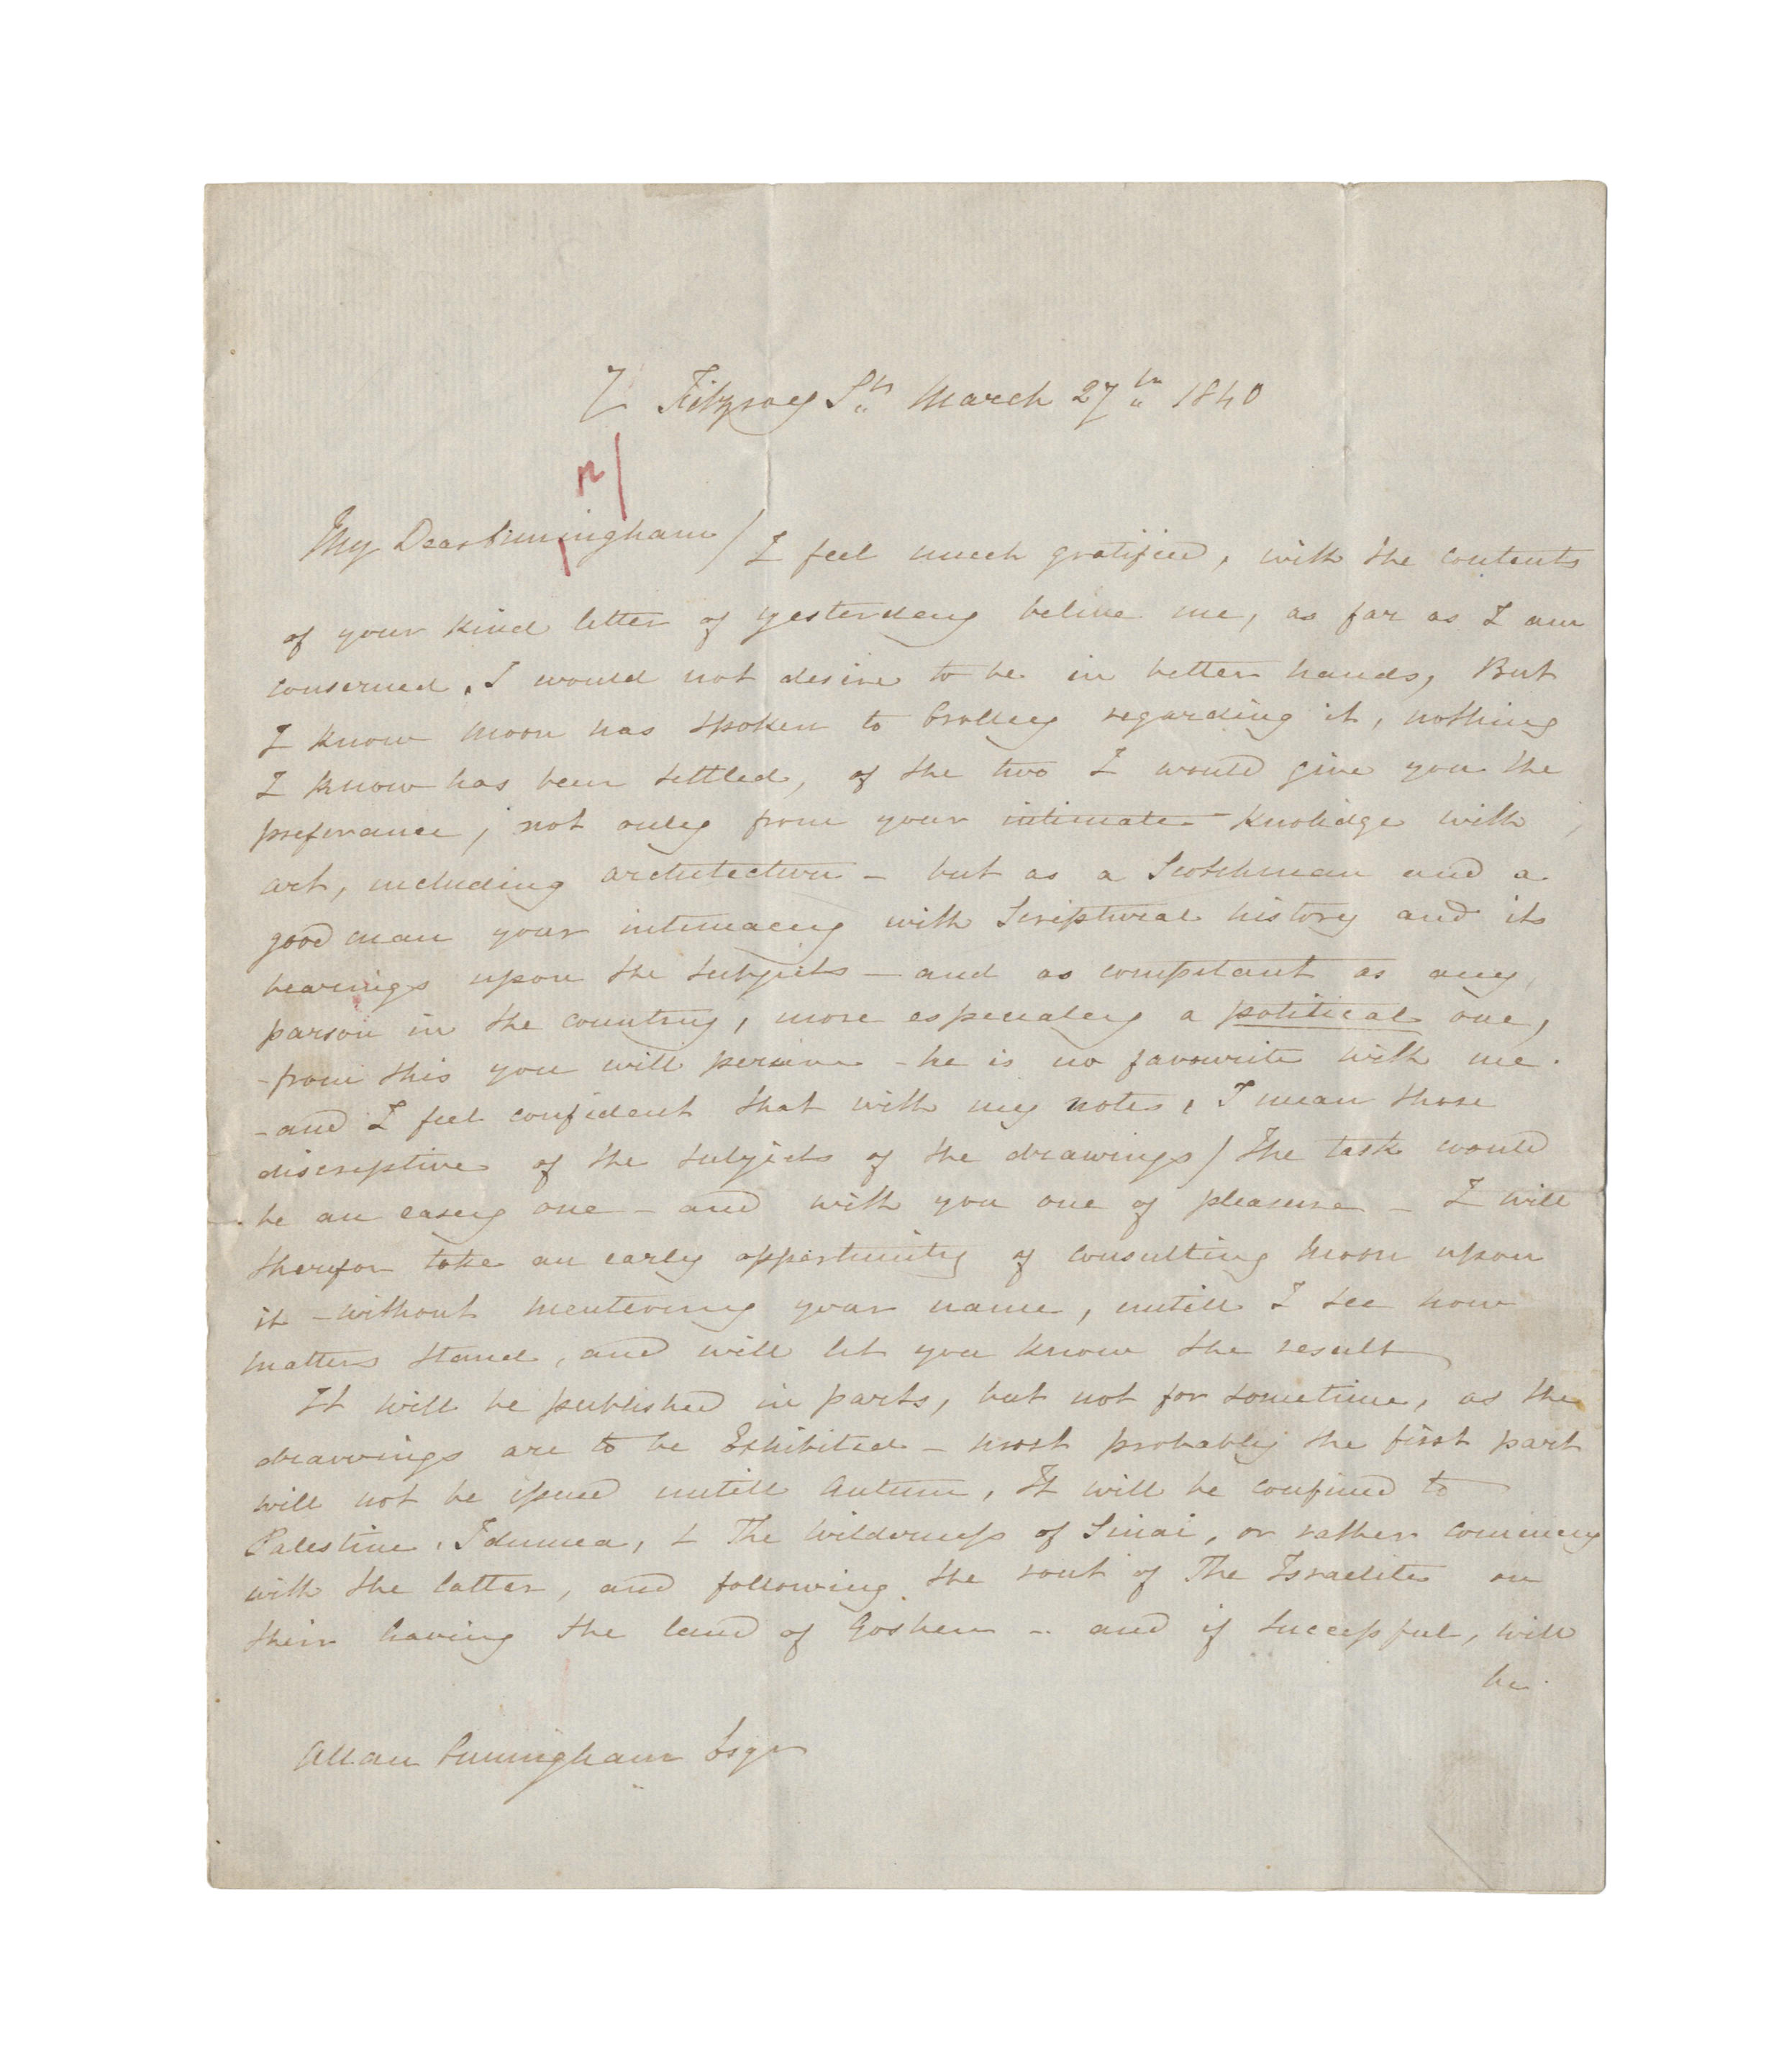 7 Fitzroy St. March 27th 1840
n/
My Dear Cuningham / I feel much gratified, with the contents
of your kind letter of yesterday belive me, as far as I am
conserned, I would not desire to be in better hands, But
I know Moon has spoken to Croley regarding it, nothing
I know has been settled, of the two I would give you the
preferance, not only from your intimate knolidge with
art, including architecture - but as a Scotchman and a
good man your intimacy with Scriptural history and its
bearings upon the subjects - and as compitant as any
parson in the country, more especialey a political one,
- from this you will percive - he is no favourite with me.
- and I feel confident that with my notes, I mean those
discriptive of the subjects of the drawings / the task would
be an easey one - and with you one of pleasure - I will
therefor take an early opportunity of consulting Moon upon
it - without mentioning your name, untill I see how
matters stand, and will let you know the result
It will be published in parts, but not for sometime, as the
drawings are to be Exhibited - most probably the first part
will not be issued untill Autumn, It will be confined to
Palestine, Idumea, & The Wilderness of Sinai, or rather
with the latter, and following the rout of The Israelites on
their leaving the land of Goshen - and if successful, will
be
Allan Cuningham Esqr